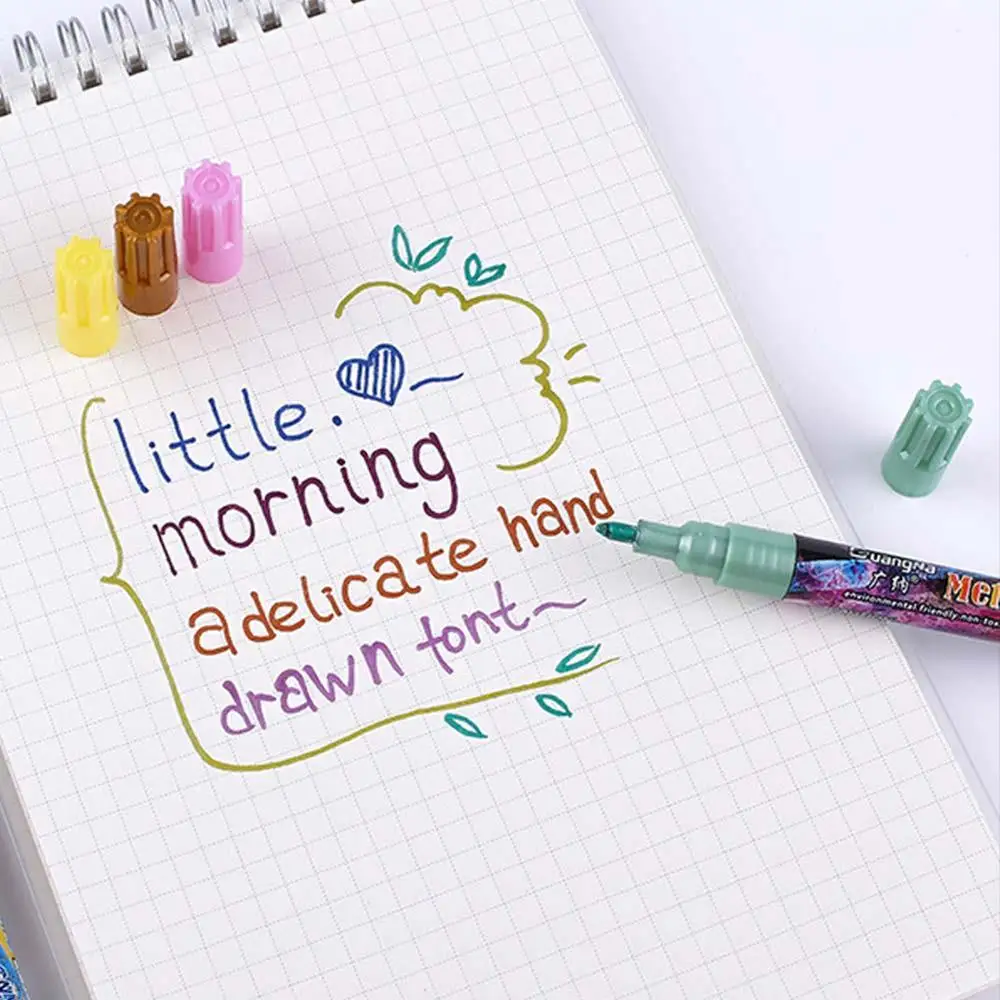 little.
morning
a delicate hand
drawn font
GuangNa
广纳®
Mer
environmental friendly,non-tox